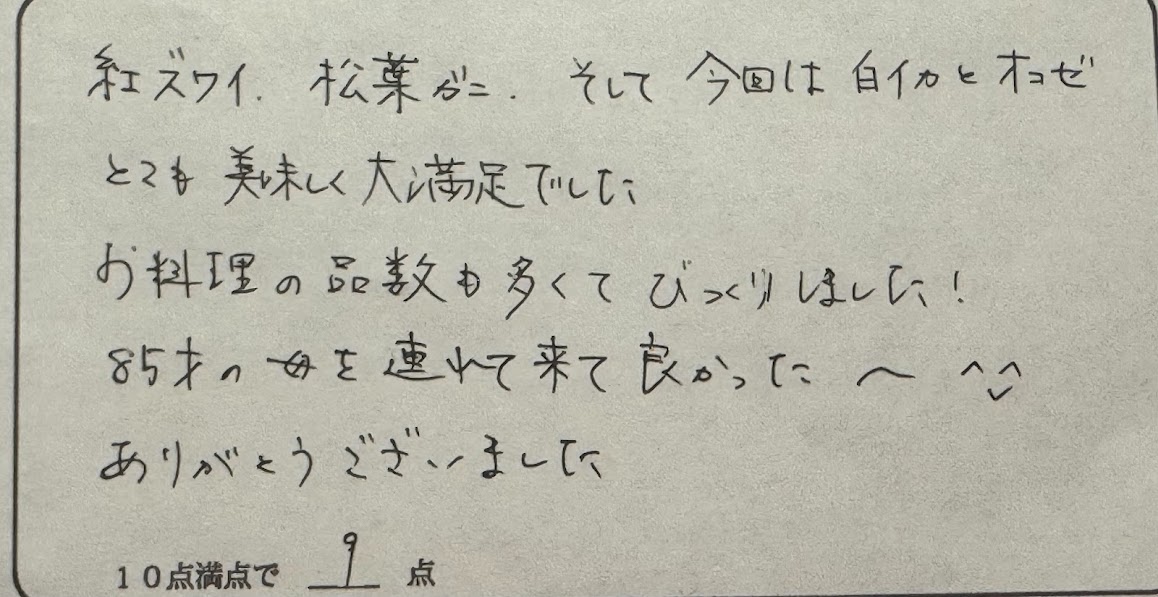 紅ズワイ. 松葉ガニ. そして 今回は 白イカと オコゼ
とても 美味しく 大満足でした
お料理の 品数も 多くて びっくりしました!
85才の 母を 連れて 来て 良かった 〜 ^◡^
ありがとう ございました
10点満点で 9 点